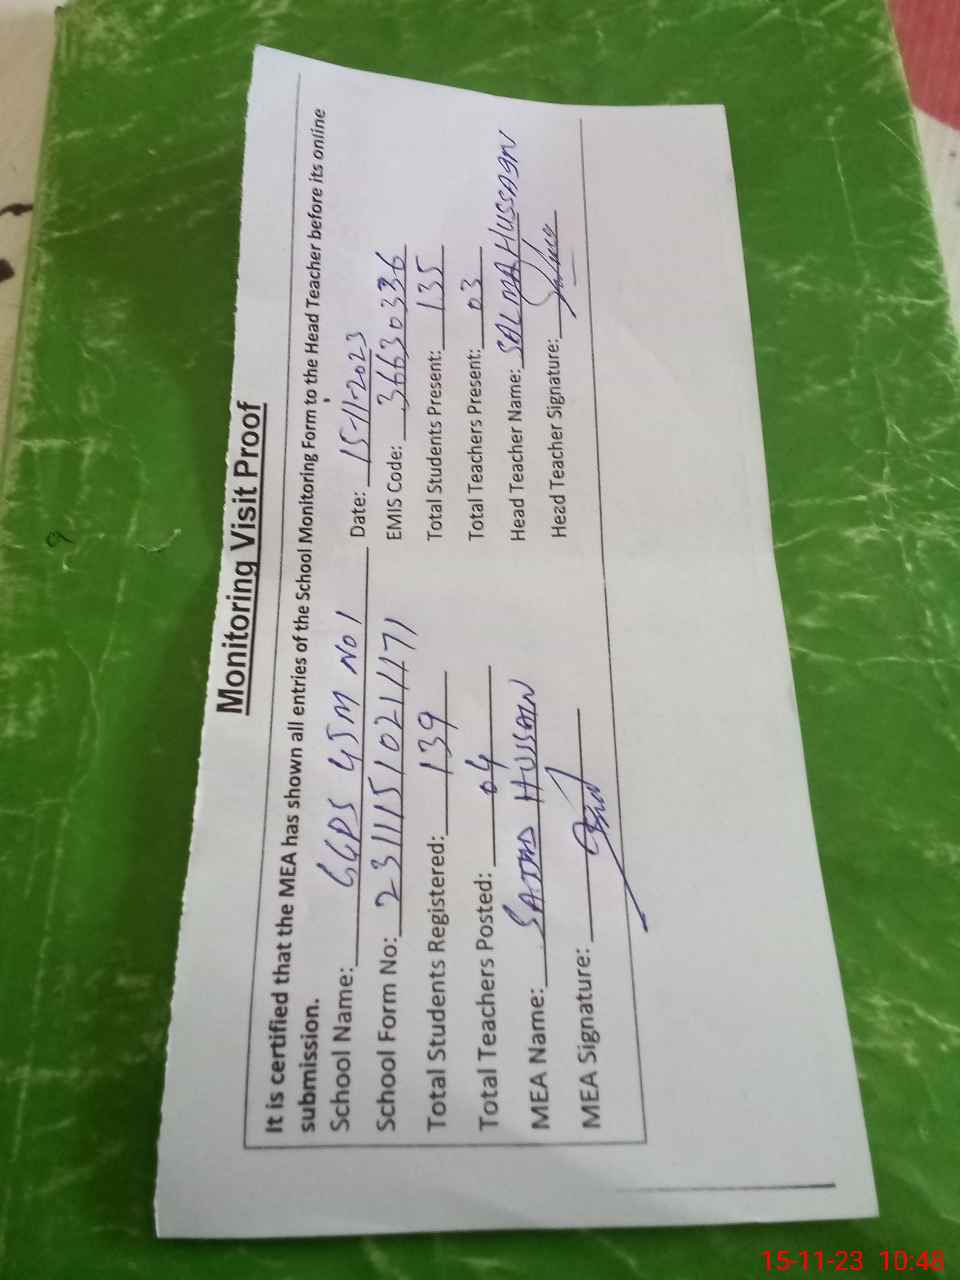 Monitoring Visit Proof
It is certified that the MEA has shown all entries of the School Monitoring Form to the Head Teacher before its online
submission.
School Name: GGPS 45M No 1 Date: 15-11-2023
School Form No: 23111510211171 EMIS Code: 36630336
Total Students Registered: 139 Total Students Present: 135
Total Teachers Posted: 04 Total Teachers Present: 03
MEA Name: SAJJAD HUSSAIN Head Teacher Name: SALMA HUSSAIN
MEA Signature: Head Teacher Signature: Salma
15-11-23 10:48